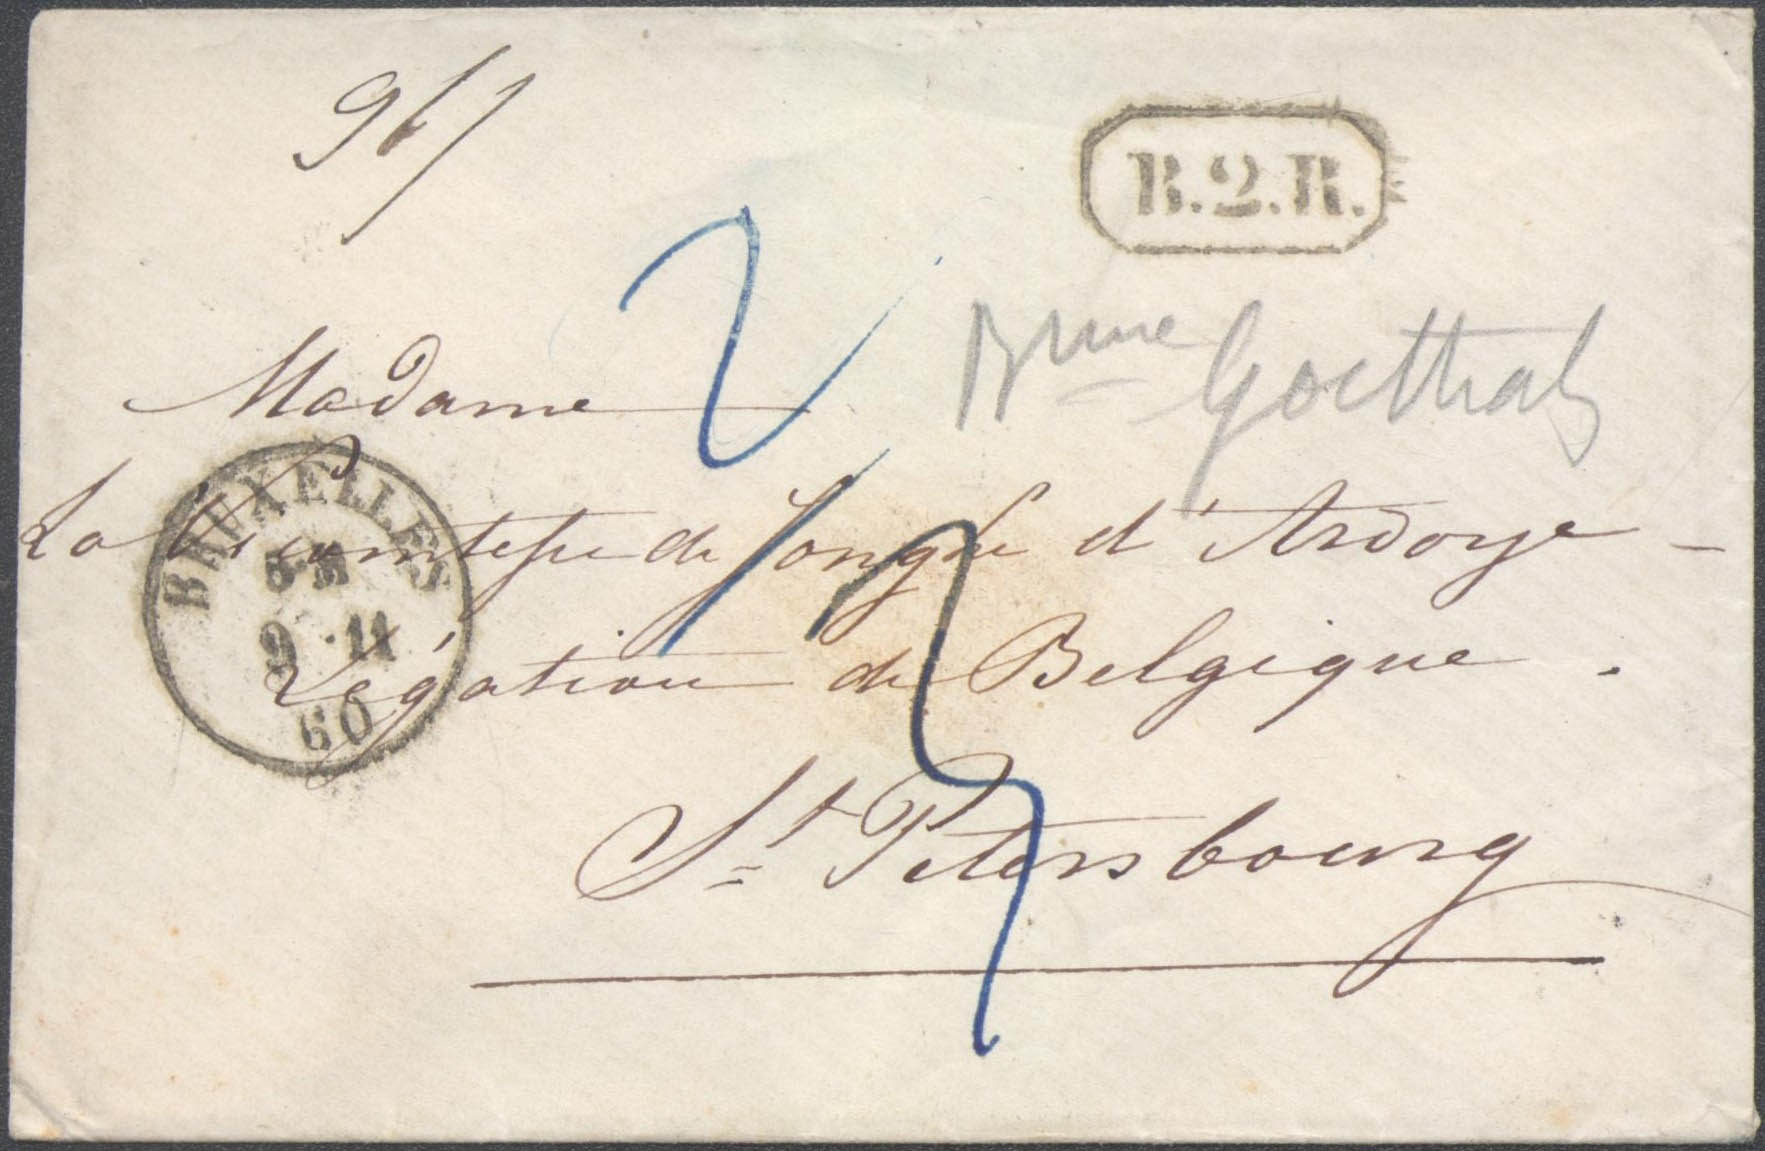 96/
B.2.R.
2/3
Bnne Goethals
Madame
La Vicomtesse de Jonghe d'Ardoye -
Légation de Belgique.
St Petersbourg
BRUXELLES
9 11
60